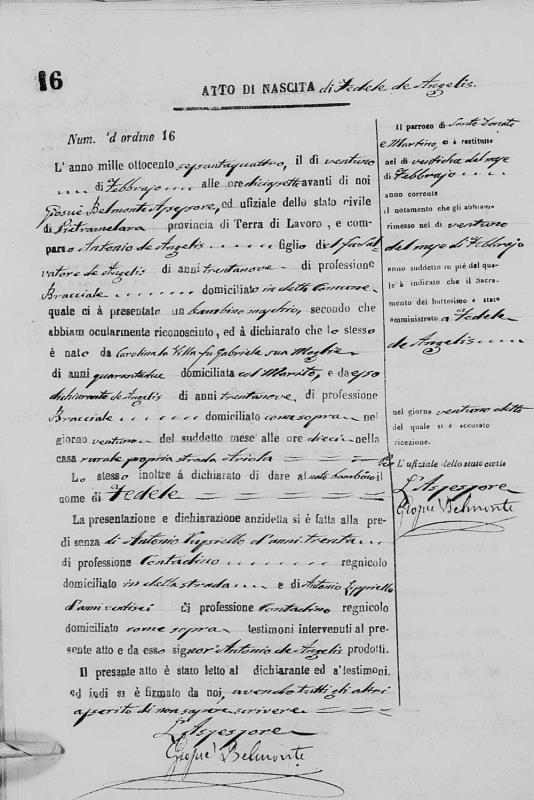 16
ATTO DI NASCITA di Fedele de Angelis.
Num. 'd ordine 16
L' anno mille ottocento settantaquattro, il dì ventuno
di Febbrajo alle ore diciasette avanti di noi
Giosuè Belmonte Assessore, ed ufiziale dello stato civile
di Pietramelara provincia di Terra di Lavoro, e com-
parso Antonio de Angelis figlio di l fu Sal-
vatore de Angelis di anni trentanove di professione
Bracciale domiciliato in detto Comune
quale ci à presentato un bambino maschio, secondo che
abbiam ocularmente riconosciuto, ed à dichiarato che lo stesso
è nato da Carolina la Villa fu Gabriele sua Moglie
di anni quarantadue dömiciliata col Marito, e da esso
dichiarante de Angelis di anni trentanove, di professione
Bracciale domiciliato come sopra nel
giorno ventuno del suddetto mese alle ore dieci nella
casa rurale propria strada Ariola
Lo stesso inoltre á dichiarato di dare al nato bambino il
nome di Fedele
La presentazione e dichiarazione anzidetta si è fatta alla pre-
di senza di Antonio d'anni trenta
di professione Contadino regnicolo
domiciliato in detta strada e di Antonio Zippiello
d'anni ventisei di professione Contadino regnicolo
domiciliato come sopra testimoni intervenuti al pre-
sente atto e da esso signor Antonio de Angelis prodotti.
Il presente atto è stato letto al dichiarante ed a' testimoni,
ed indi si è firmato da noi, avendo tutti gli altri
asserito di non sapere scrivere
L'Assessore
Giosuè Belmonte
Il parroco di Santo Donato
e Martino, ci à restituito
nel dì del mese
di Febbrajo
anno corrente
il notamento che gli abbiamo
rimesso nel dì ventuno
del mese di Febbrajo
anno suddetto in piè del qua-
le à indicato che il Sacra-
mento del battesimo è stato
amministrato a Fedele
de Angelis
nel giorno ventuno detto
del quale si è accusato
ricezione.
Per L' ufiziale dello stato civile
L'Assessore
Giosuè Belmonte